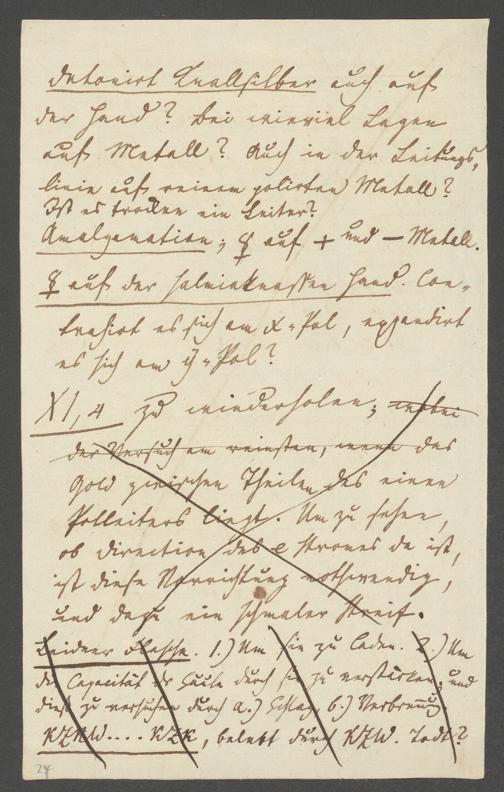 detonirt Knallsilber auch auf
der Hand? Bei wieviel Lagen
auf Metall? Auch in der Leitungs-
linie auf reinem polirten Metall?
Ist es trocken ein Leiter?
Amalgamation; ☿ auf + und – Metall.
☿ auf der salmiaknassen Hand. Con-
trahirt es sich am x-Pol, expandirt
es sich am y-Pol?
XI, 4 zu wiederholen; wobei
der Versuch am reinsten, wenn das
Gold zwischen Theilen des einen
Polleiters liegt. Um zu sehen,
ob direction des e Stromes da ist,
ist diese Vorrichtung nothwendig,
und dazu ein schmaler Streif.
Leidner Flasche. 1.) Um sie zu laden. 2.) Um
die Capacität der Säule durch sie zu verstärken, und
dies zu versuchen durch a.) Schlag, b.) Verbrennung.
KZKW.... KZK, belebt durch KZW. Todt?
24